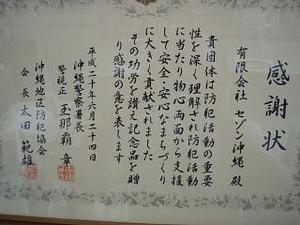 感謝状
有限会社 セゾン沖縄 殿
貴団体は防犯活動の重要
性を深く理解され防犯活動
に当たり物心両面から支援
して安全・安心なまちづくり
に大きく貢献されました
その功労を讃え記念品を贈
り感謝の意を表します
平成二十年六月二十四日
沖縄警察署長
警視正 玉那覇 章
沖縄地区防犯協会
会長 太田 範雄